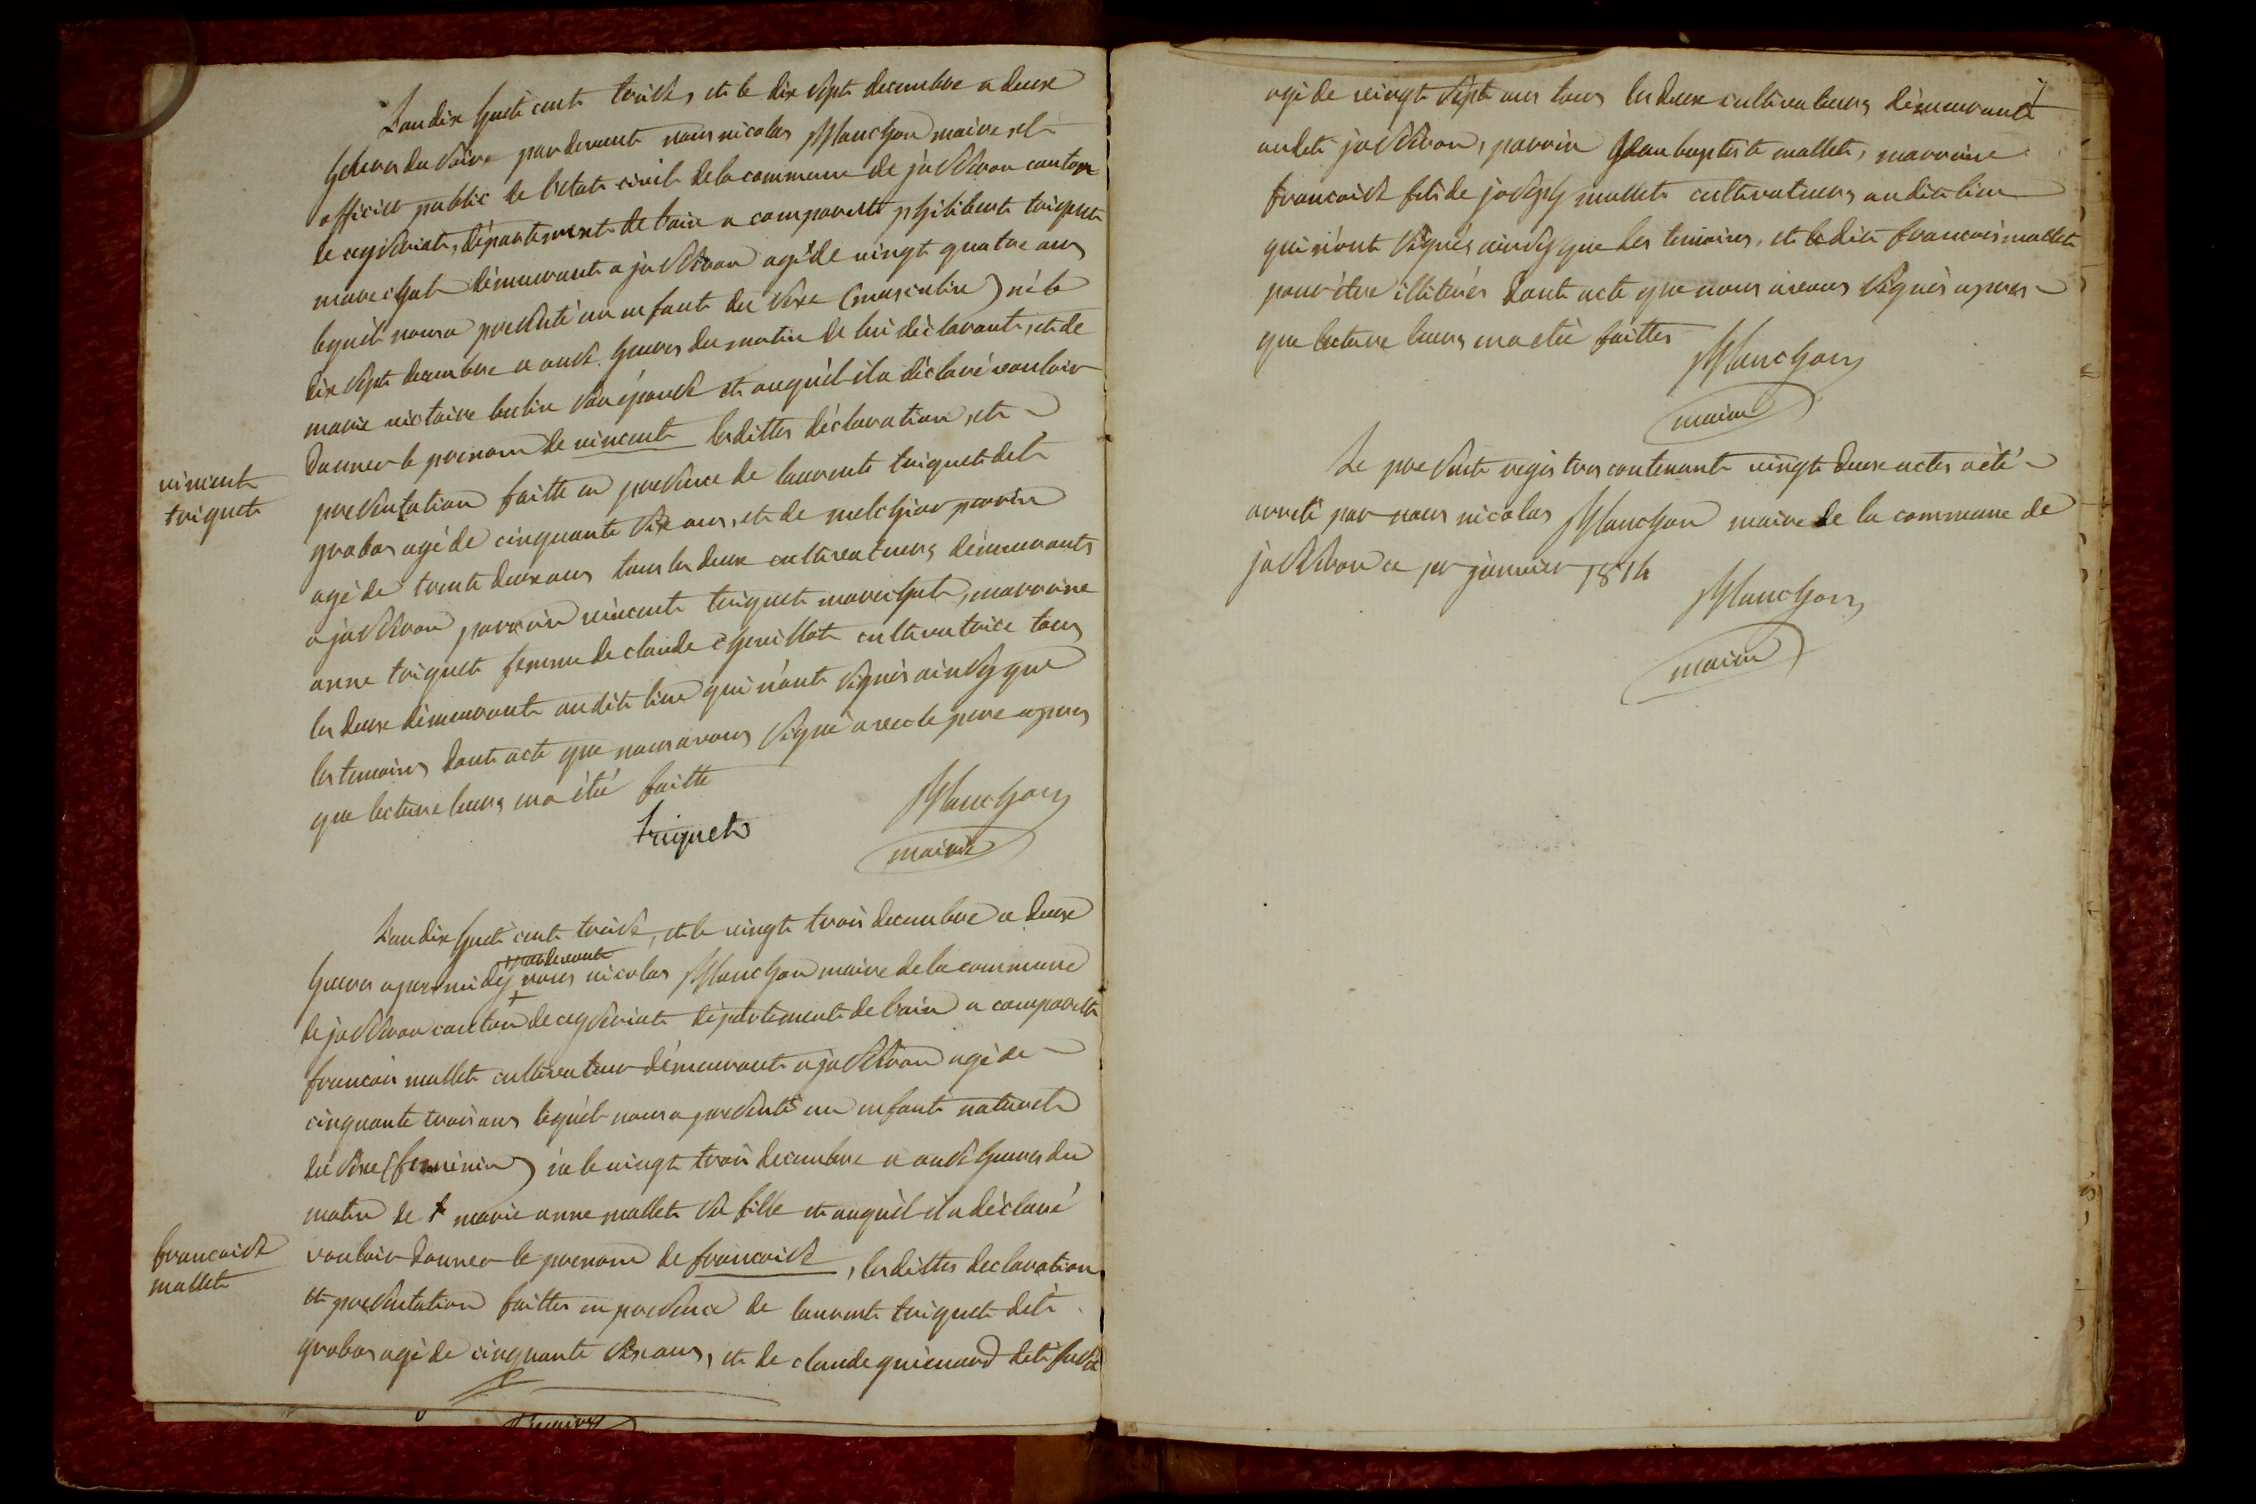 L'an dix huit cent treise, et le dix sept decembre a deux
heures du soire pardevant nous nicolas Planchon maire et
officier public de l'état civil de la commune de jasseron canton
de ceyseriat, département de l'ain a comparuts philibert triquet
marechal démeurant a jasseron agé de vingt quatre ans
lequél nous a presenté un enfant du sexe (masculin) né le
dix sept decembre a onse heures du matin de lui déclarant, et de
marie victoire sa épouse et auquél il a déclaré vouloir
donner le prenom de vincent lesdittes déclaration, et
presentation faitte en presence de laurent triquet dit
grobas agé de cinquante six ans, et de melchior perrin
agé de trente deux ans tous les deux cultivateurs démeurants
a jasseron parrein vincent triquet marechal, marraine
anne triquet femme de claude chevillot cultivatrice tous
les deux démeurant audit lieu qui n'ont signés ainsy que
les temoins dont acte que nous avons signé avec le pere apres
que lecture leurs en a été faitte
triquet
Planchon
maire
vincent
triquet
L'an dix huit cent treise, et le vingt trois decembre a deux
pardevant
heures apres midÿ nous nicolas Planchon maire de la commune
de jasseron canton de ceyseriat département de l'ain a comparuts
francois mallet cultivateur démeurant a jasseron agé de
cinquante trois ans lequél nous a presenté un enfant naturel
du séxe (feminin) né le vingt trois decembre a onse heures du
matin de marie anne mallet sa fille et auquél il a déclaré
vouloir donner le prenom de francoise, lesdittes declaration
et presentation faittes en presence de laurent triquet dit
grobas agé de cinquante six ans, et de claude guienard dit
francoise
mallet
agé de vingt sept ans tous les deux cultivateurs démeurant
audit jasseron, parrain Jean baptiste mallet, marraine
francoise fili de joseph mallet cultivateurs audit lieu
qui n'ont signés ainsy que les temoins, et ledit francois mallet
pour être illiterés dont acte que nous avons signés apres
que lecture leurs en a étée faittes
Planchon
maire
Le present registres contenant vingt deux actes a été
arreté par nous nicolas Planchon maire de la commune de
jasseron ce 1er janvier 1814
Planchon
maire